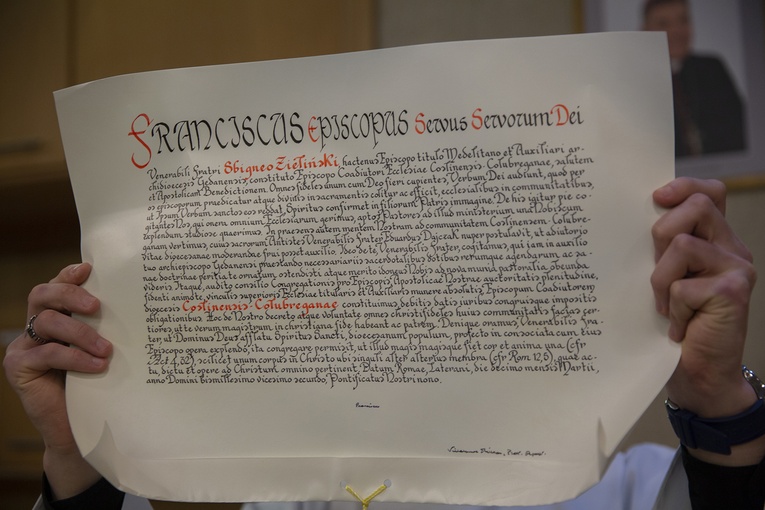 FRANCISCUS EPISCOPUS Servus Servorum Dei
Venerabili Fratri Sbigneo Zieliński, hactenus Episcopo titulo Medelitano et Auxiliari ar-
chidioecesis Gedanensis, constituto Episcopo Coadiutori Ecclesiae Coslinensis-Colubreganae, salutem
et Apostolicam Benedictionem. Omnes fideles unum cum Deo fieri cupientes, Verbum Dei audiunt, quod per
eos episcoporum, praedicatur atque divinis in sacramentis colitur ac efficit, ecclesialibus in communitatibus,
ut Ipsum Verbum sanctos eos reddat, Spiritus confirmet in filiorum Patris imagine. De his igitur pie co-
gitantes Nos, qui onera omnium Ecclesiarum gerimus, aptos Pastores ad illud ministerium una Nobiscum
explendum studiose quaerimus. In praesens autem mentem Nostram ad communitatem Coslinensem-Colubre-
ganam vertimus, cuius sacrorum Antistes Venerabilis Frater Eduardus Dajczak nuper postulavit, ut adiutorio
vitae dioecesanae moderandae frui posset auxilio. Ideo te, Venerabilis Frater, cogitamus, qui iam in auxilio
tuo archiepiscopo Gedanensi praestando necessariis sacerdotalibus dotibus rerumque agendarum, ac sa-
nae doctrinae peritia te ornatum, ostendisti atque merito dignus Nobis ad nova munia pastoralia obeunda
videris. Itaque, audito consilio Congregationis pro Episcopis, Apostolicae Nostrae auctoritatis plenitudine,
fidenti animo te, vinculis superioris Ecclesiae titularis et Auxiliaris munere absolutis, Episcopum Coadiutorem
dioecesis Coslinensis-Colubreganae constituimus, debitis datis iuribus congruisque impositis
obligationibus. Hoc de Nostro decreto atque voluntate omnes christifideles huius communitatis facias cer-
tiores, ut te verum magistrum in christiana fide habeant ac patrem. Denique oramus, Venerabilis Fra-
ter, ut Dominus Deus afflatu Spiritus Sancti, dioecesanum populum, profecto in consociata cum eius
Episcopo opera explendo, ita congregare permisit, ut illud magis magisque fiet cor et anima una (cfr
Act 4, 32), scilicet unum corpus in Christo ubi singuli alter alterius membra (cfr Rom 12, 5), quae ac-
tu, dictu et opere ad Christum omnino pertinent. Datum Romae, Laterani, die decimo mensis Martii,
anno Domini bismillesimo vicesimo secundo, Pontificatus Nostri nono.